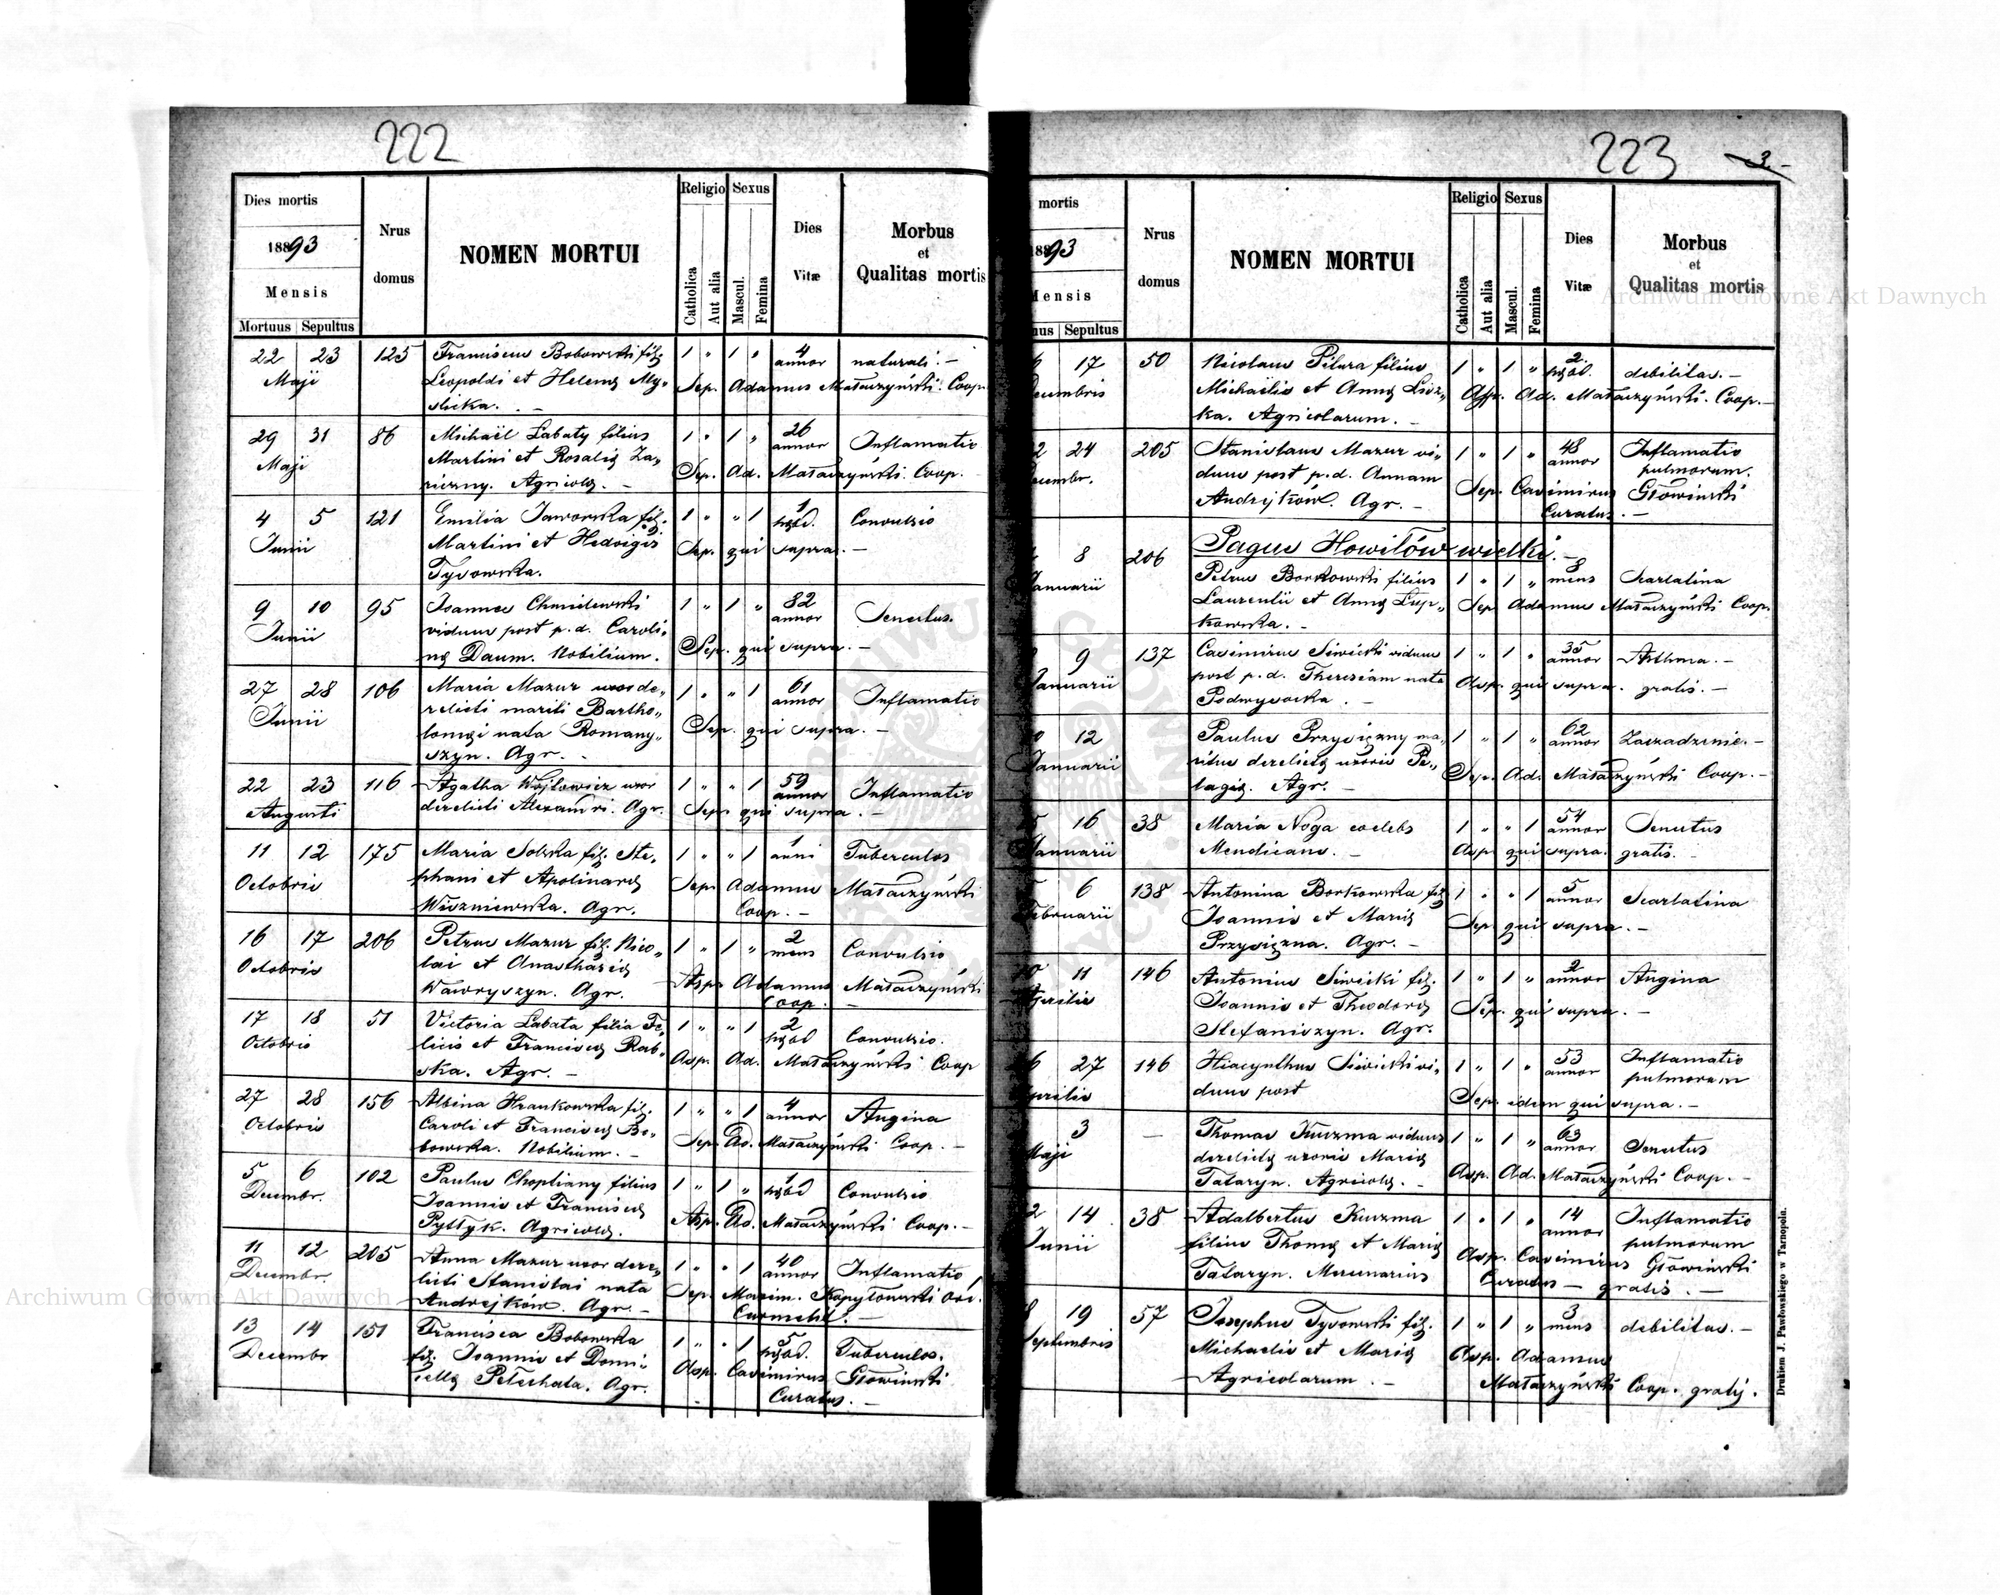 222
Dies mortis
1893
Mensis
Mortuus Sepultus
Nrus domus
NOMEN MORTUI
Religio
Catholica
Aut alia
Sexus
Mascul.
Femina
Dies Vitæ
Morbus et Qualitas mortis
22 23 125 Franciscus Bobowski filg 1 " 1 " 4 annor naturali. –
Maji Leopoldi et Helenę My- Sep. Adamus Mataczyński. Coop.
slicka. –
29 31 86 Michaël Labaty filius 1 " 1 " 26 annor Inflamatio
Maji Martini et Rosalię Za- Sep. Ad. Mataczyński. Coop.
riczny. Agricolę. –
4 5 121 Emilia Jaworska fil. 1 " " 1 1 hebd. Convulsio
Junii Martini et Hedvigis Sep. qui supra. –
Tysowska.
9 10 95 Joannes Chmielewski 1 " 1 " 82 annor Senectus.
Junii viduus post p. d. Caroli- Sep. qui supra. –
nę Daum. Nobilium.
27 28 106 Maria Mazur uxor de- 1 " " 1 61 annor Inflamatio
Junii relicti mariti Bartho- Sep. qui supra. –
lomęi nata Romany-
szyn. Agr. –
22 23 116 Agatha Wojtowicz uxor 1 " " 1 59 annor Inflamatio
Augusti derelicti Alexandri. Agr. Sep. qui supra. –
11 12 175 Maria Solska fil. Ste- 1 " " 1 1 anni Tuberculos
Octobris phani et Apolinarę Sep. Adamus Mataczyński
Wiszniewska. Agr. Coop. –
16 17 206 Petrus Mazur fil. Nico- 1 " 1 " 2 mens Convulsio
Octobris lai et Anasthazię Asp. Adamus Mataczyński
Wawryszyn. Agr. Coop. –
17 18 51 Victoria Labata filia Fe- 1 " " 1 2 hebd Convulsio.
Octobris licis et Franciscę Rab- Asp. Ad. Mataczyński Coop
ska. Agr. –
27 28 156 Albina Hrankowska fil. 1 " " 1 4 annor Angina
Octobris Caroli et Franciscę Bo- Sep. Ad. Mataczyński Coop. –
bowska. Nobilium. –
5 6 102 Paulus Choptiany filius 1 " 1 " 1 hebd Convulsio
Decembr. Joannis et Franciscę Asp. Ad. Mataczyński Coop. –
Pyttyk. Agricolę.
11 12 205 Anna Mazur uxor dere- 1 " " 1 40 annor Inflamatio
Decembr. licti Stanislai nata Sep. Maxim. Kopytowski Ord.
Andrejków. Agr. – Carmelit. –
13 14 151 Francisca Bobowska 1 " " 1 5 hebd. Tuberculos.
Decembr fil. Joannis et Domi- Asp. Casimirus Głowiński
cellę Petechata. Agr. Curatus. –
223
3
mortis
1893
Mensis
Sepultus
Nrus domus
NOMEN MORTUI
Religio
Catholica
Aut alia
Sexus
Mascul.
Femina
Dies Vitæ
Morbus et Qualitas mortis
17 50 Nicolaus Pilura filius 1 " 1 " 2 hebd. debilitas. –
Michaëlis et Annę Asp. Ad. Mataczyński. Coop. –
ka. Agricolarum. –
24 205 Stanislaus Mazur vi- 1 " 1 " 48 annor Inflamatio
duus post p. d. Annam pulmorum.
Andrejków. Agr. – Sep. Casimirus Głowiński
Curatus. –
Pagus Howiłów wielki. –
8 206 Petrus Borkowski filius 1 " 1 " 8 mens Scarlatina
Januarii Laurentii et Annę Łup- Sep. Adamus Mataczyński Coop.
kowska. –
9 137 Casimirus Siwicki viduus 1 " 1 " 35 annor Asthma. –
Januarii post p. d. Theresiam nate Asp. qui supra. gratis. –
Podwysocka. –
12 Paulus Przysiężny ma- 1 " 1 " 62 annor Zaczadzenie. –
Januarii ritus derelictę uxoris Pe- Sep. Ad. Mataczyński Coop. –
lagię. Agr. –
16 38 Maria Noga coelebs 1 " " 1 54 annor Senectus
Januarii Mendicans. – Asp. qui supra. gratis. –
6 138 Antonina Borkowska fil 1 " " 1 5 annor Scarlatina
Februarii Joannis et Marię Sep. qui supra. –
Przysiężna. Agr. –
11 146 Antonius Siwicki fil. 1 " 1 " 2 annor Angina
Aprilis Joannis et Theodorę Sep. qui supra. –
Stefaniszyn. Agr.
27 146 Hiacynthus Siwicki vi- 1 " 1 " 53 annor Inflamatio
Aprilis duus post pulmorum
Sep. idem qui supra. –
3 – Thomas Kuczma viduus 1 " 1 " 63 annor Senectus
Maji derelictę uxoris Marię Asp. Ad. Mataczyński Coop. –
Tataryn. Agricolę. –
14 38 Adalbertus Kuczma 1 " 1 " 14 annor Inflamatio
Junii filius Thomę et Marię pulmorum
Tataryn. Mercenarius Asp. Casimirus Głowiński
Curatus – gratis. –
19 57 Josephus Tysowski fil. 1 " 1 " 3 mens debilitas. –
Septembris Michaelis et Marię Asp. Adamus
Agricolarum. – Mataczyński Coop. gratis.
Drukiem J. Pawłowskiego w Tarnopolu.
Archiwum Główne Akt Dawnych
Archiwum Główne Akt Dawnych